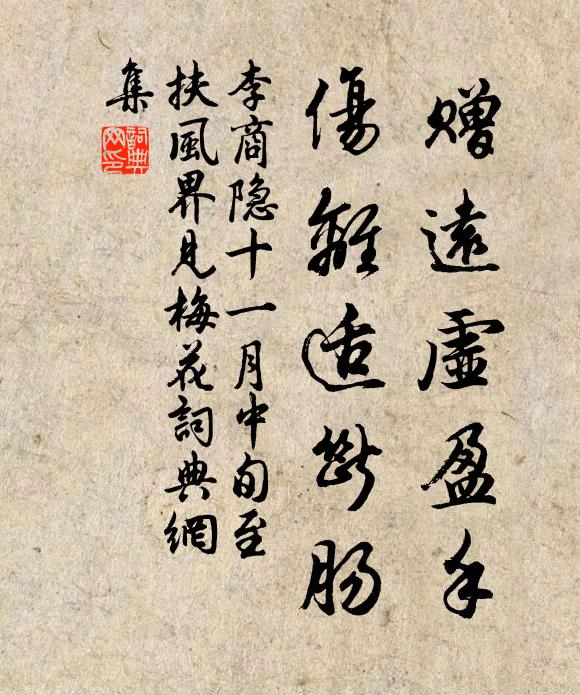 贈遠虛盈手
傷離适斷肠
李商隐十一月中旬至
扶風界見梅花詞典網
集
詞典
网印